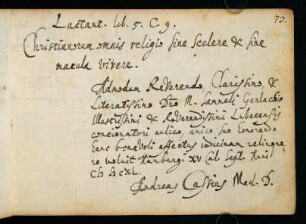 73.
Lactant. lib. 5. C. 9.
Christianorum omnis religio sine scelere & sine
macula vivere.
Admodum Reverendo, Clarissimo, &
Literatissimo Dño M. Samueli Gerlachio
Illustrissimi & Reverendissimi Lubecensis
concionatori aulico, amico suo honorando
hanc benevoli affectus indicium relinque-
re voluit Hamburgi XV Cal Sept. Anni
CIↃ IↃCXL.
Andreas Cassius Med. D.